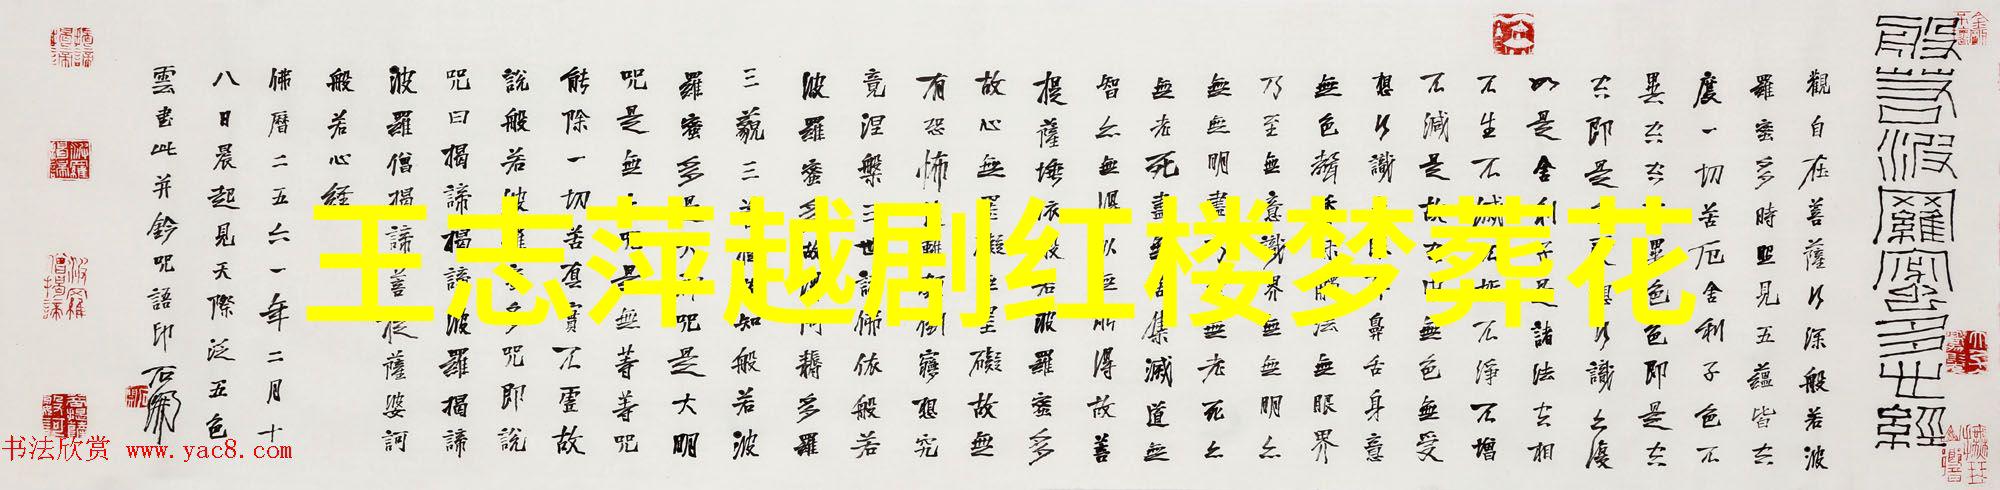 般若波羅蜜多心經
觀自在菩薩行深般若波
羅蜜多時照見五蘊皆空
度一切苦厄舍利子色不
異空空不異色色即是空
空即是色受想行識亦復
如是舍利子是諸法空相
不生不滅不垢不淨不增
不減是故空中無色無受
想行識無眼耳鼻舌身意
無色聲香味觸法無眼界
乃至無意識界無無明亦
無無明盡乃至無老死亦
無老死盡無苦集滅道無
智亦無得以無所得故菩
提薩埵依般若波羅蜜多
故心無罣礙無罣礙故無
有恐怖遠離顛倒夢想究
竟涅槃三世諸佛依般若
波羅蜜多故得阿耨多羅
三藐三菩提故知般若波
羅蜜多是大神咒是大明
咒是無上咒是無等等咒
能除一切苦真實不虛故
說般若波羅蜜多咒即說
咒曰揭諦揭諦波羅揭諦
波羅僧揭諦菩提薩婆訶
般若心經
佛曆二五六一年二月十
八日晨起見天際泛五色
雲書此并鈐咒語印 石開
王志萍越剧红楼梦葬花
书法欣赏 www.yac8.com